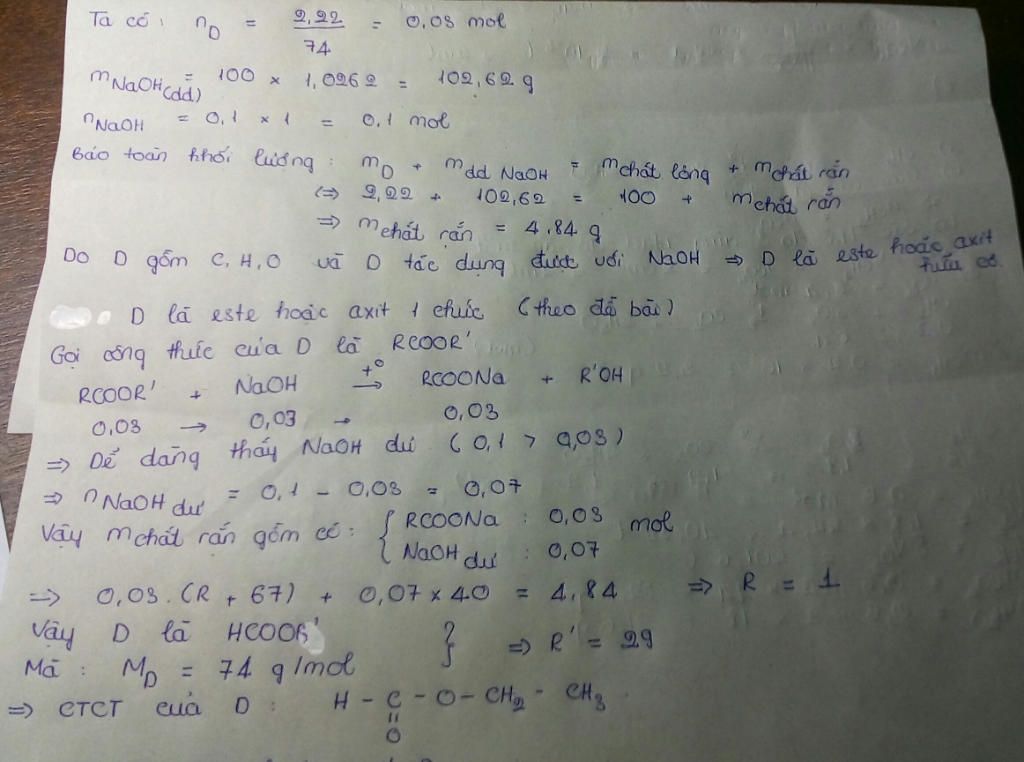 Ta có: n_D = 2,22/74 = 0,03 mol
m_NaOH(dd) = 100 × 1,0262 = 102,62 g
n_NaOH = 0,1 × 1 = 0,1 mol
Bảo toàn khối lượng: m_D + m_dd NaOH = m_chất lỏng + m_chất rắn
(=> 2,22 + 102,62 = 100 + m_chất rắn
=> m_chất rắn = 4,84 g
Do D gồm C, H, O và D tác dụng được với NaOH => D là este hoặc axit hữu cơ.
D là este hoặc axit 1 chức (theo đề bài)
Gọi công thức của D là RCOOR'
RCOOR' + NaOH t° → RCOONa + R'OH
0,03 → 0,03 → 0,03
=> Dễ dàng thấy NaOH dư (0,1 > 0,03)
=> n_NaOH dư = 0,1 - 0,03 = 0,07
Vậy m chất rắn gồm có: { RCOONa : 0,03 mol
NaOH dư : 0,07
=> 0,03.(R + 67) + 0,07 × 40 = 4,84 => R = 1
Vậy D là HCOOR' } => R' = 29
Mà: M_D = 74 g/mol
=> CTCT của D: H - C - O - CH₂ - CH₃
||
O